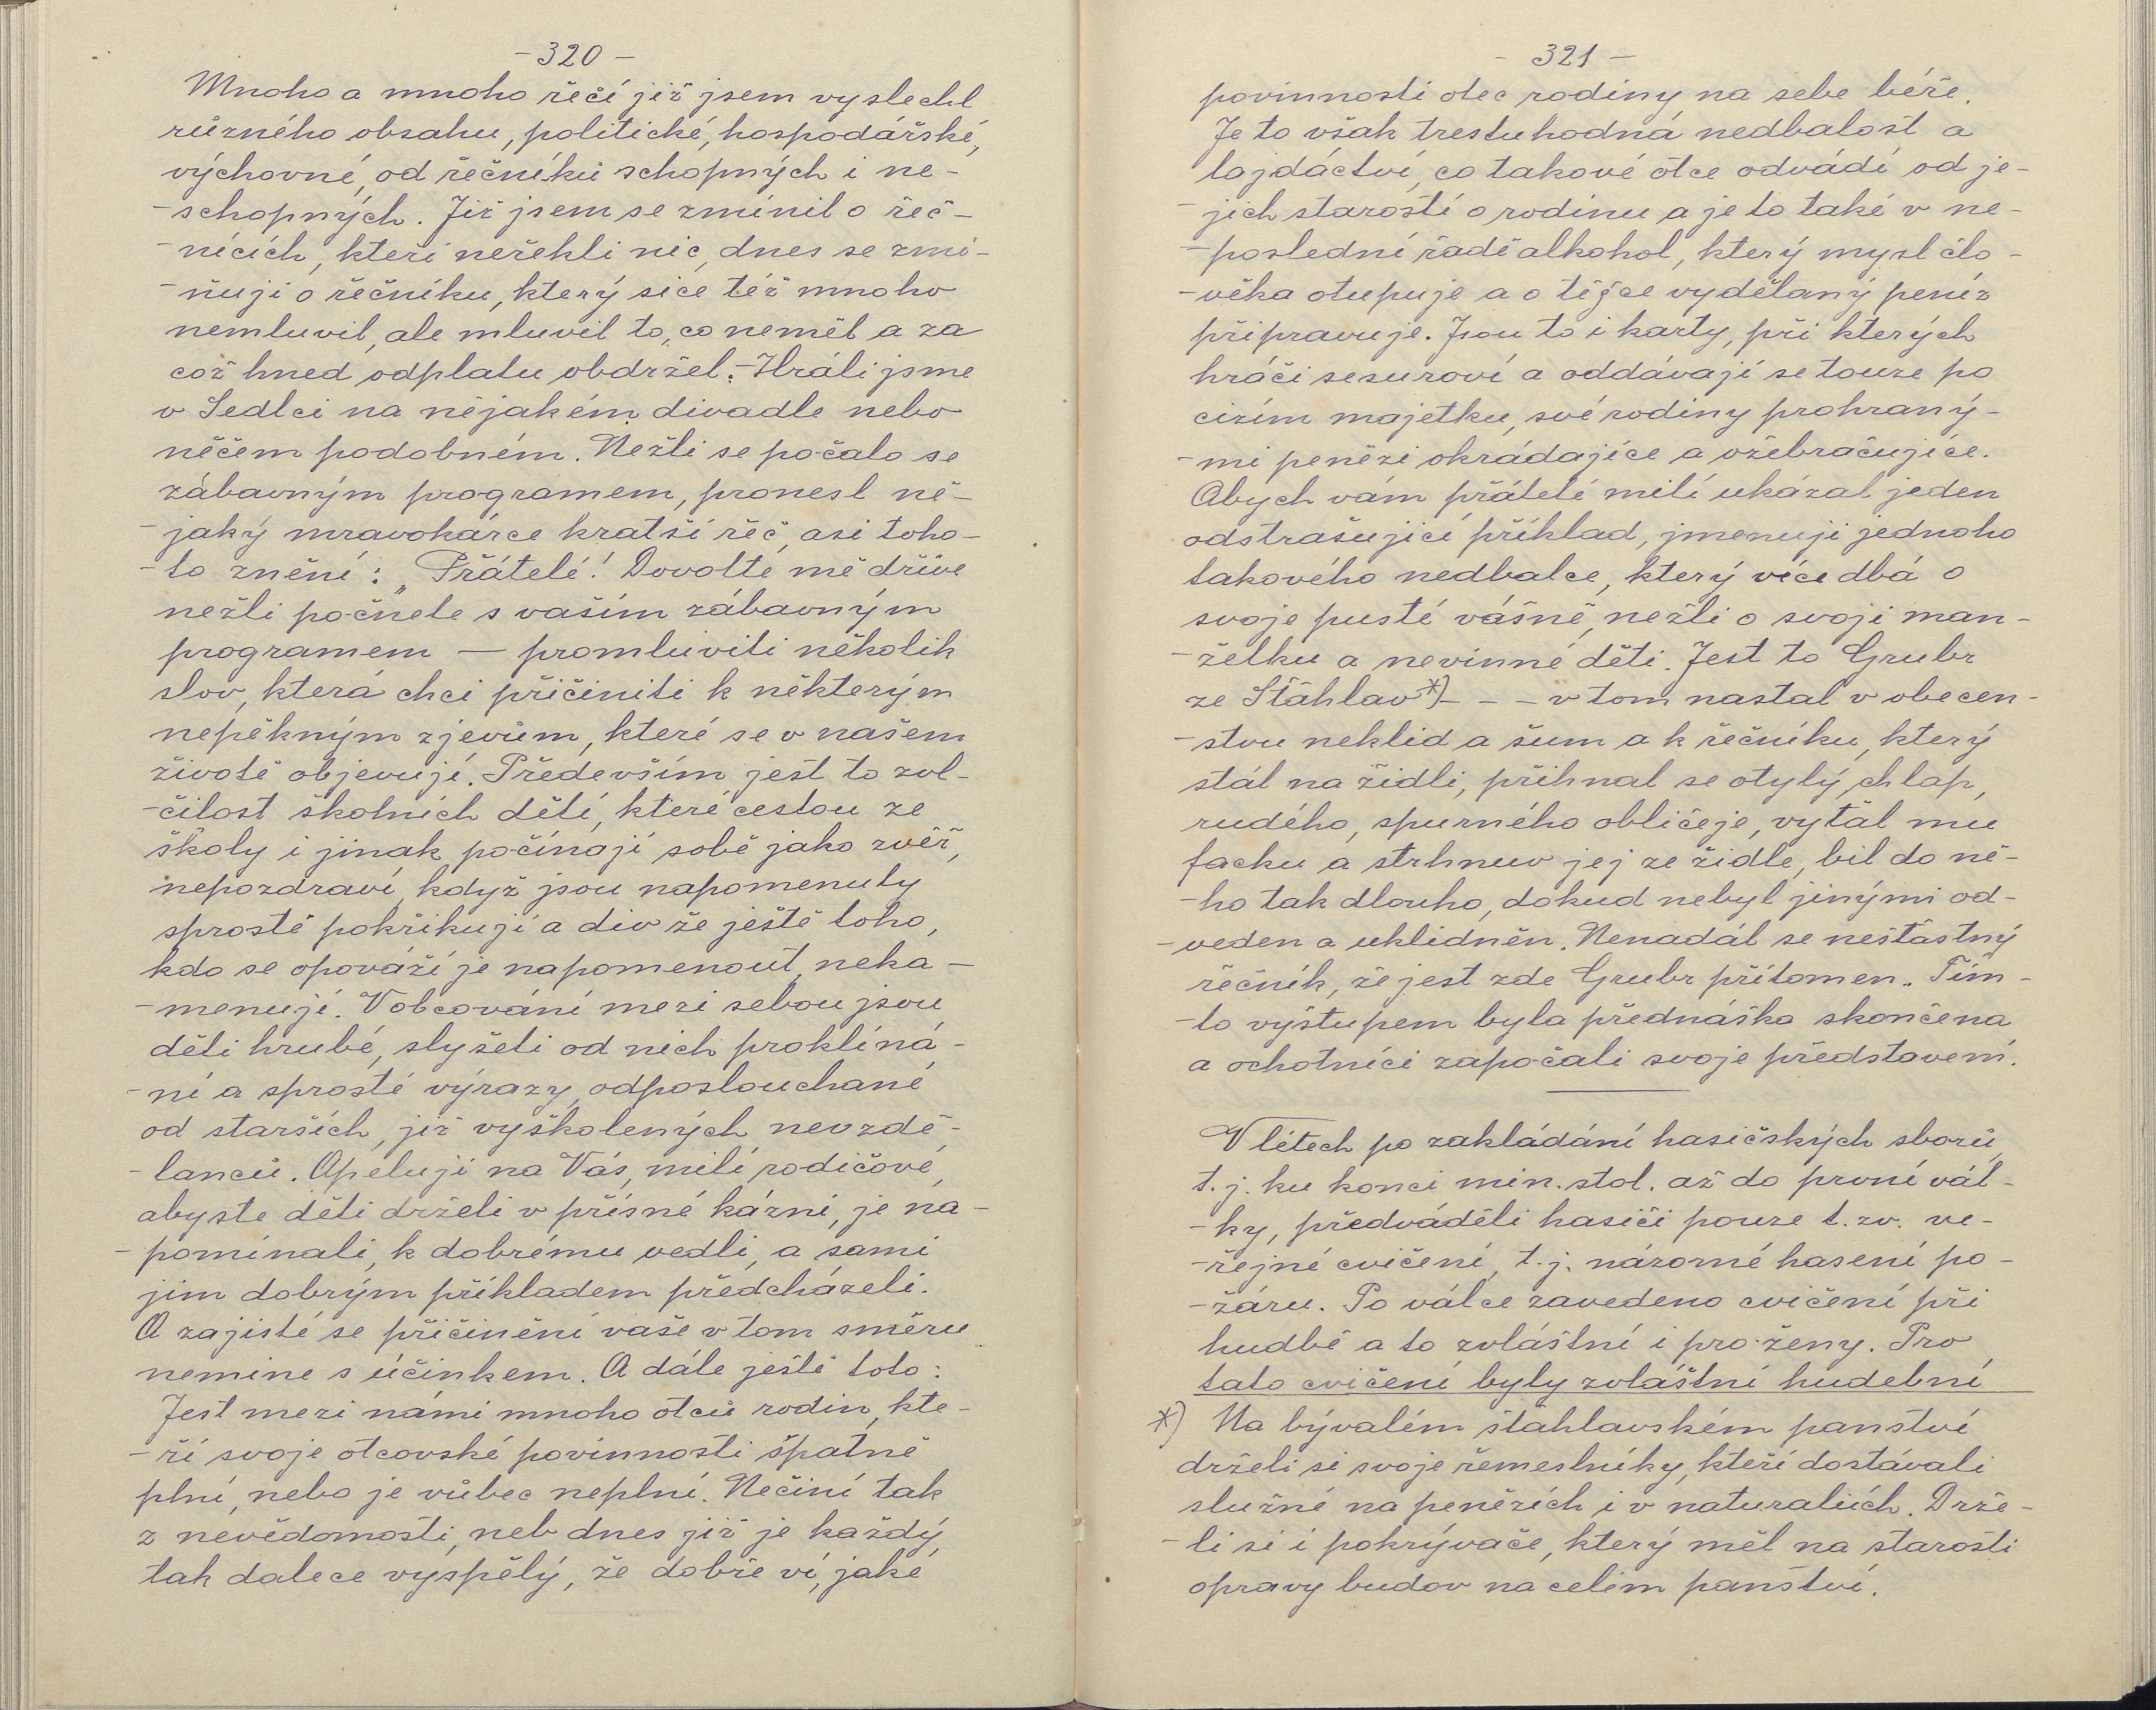 - 320 -
Mnoho a mnoho řečí již jsem vyslechl
různého obsahu, politické, hospodářské,
výchovné, od řečníků schopných i ne-
-schopných. Již jsem se zmínil o řeč-
-nících, kteří neřekli nic, dnes se zmi-
-ňuji o řečníku, který sice též mnoho
nemluvil, ale mluvil to, co neměl a za
což hned odplatu obdržel. - Hráli jsme
v Sedlci na nějakém divadle nebo
něčem podobném. Nežli se počalo se
zábavným programem, pronesl ně-
-jaký mravokárce kratší řeč, asi toho-
-to znění: „Přátelé! Dovolte mě dříve
nežli počnete s vaším zábavným
programem — promluviti několik
slov, která chci přičiniti k některým
nepěkným zjevům, které se v našem
životě objevují. Především jest to zvl-
-čilost školních dětí, které cestou ze
školy i jinak počínají sobě jako zvěř,
nepozdraví, když jsou napomenuty
sprostě pokřikují a div že ještě toho,
kdo se opováží je napomenout, neka-
-menují. V obcování mezi sebou jsou
děti hrubé, slyšeti od nich proklíná-
-ní a sprosté výrazy, odposlouchané
od starších, již vyškolených nevzdě-
-lanců. Apeluji na Vás, milí rodičové,
abyste děti drželi v přísné kázni, je na-
-pomínali, k dobrému vedli, a sami
jim dobrým příkladem předcházeli.
A zajisté se přičinění vaše v tom směru
nemine s účinkem. A dále ještě toto:
Jest mezi námi mnoho otců rodin, kte-
-ří svoje otcovské povinnosti špatně
plní, nebo je vůbec neplní. Nečiní tak
z nevědomosti, neb dnes již je každý
tak dalece vyspělý, že dobře ví, jaké
- 321 -
povinnosti otec rodiny na sebe béře.
Je to však trestuhodná nedbalost a
lajdáctví, co takové otce odvádí od je-
-jich starostí o rodinu a je to také v ne-
-poslední řadě alkohol, který mysl člo-
-věka otupuje a o těžce vydělaný peníz
připravuje. Jsou to i karty, při kterých
hráči sesuroví a oddávají se touze po
cizím majetku, své rodiny prohraný-
-mi penězi okrádajíce a ožebračujíce.
Abych vám přátelé milí ukázal jeden
odstrašující příklad, jmenuji jednoho
takového nedbalce, který více dbá o
svoje pusté vášně, nežli o svoji man-
-želku a nevinné děti. Jest to Grubr
ze Šťáhlav*) - - - v tom nastal v obecen-
-stvu neklid a šum a k řečníku, který
stál na židli, přihnal se otylý chlap,
rudého, spurného obličeje, vyťal mu
facku a strhnuv jej ze židle, bil do ně-
-ho tak dlouho, dokud nebyl jinými od-
-veden a uklidněn. Nenadál se nešťastný
řečník, že jest zde Grubr přítomen. Tím-
-to výstupem byla přednáška skončena
a ochotníci započali svoje představení.
V létech po zakládání hasičských sborů,
t. j. ku konci min. stol. až do první vál-
-ky, předváděli hasiči pouze t. zv. ve-
-řejné cvičení, t. j. názorné hasení po-
-žáru. Po válce zavedeno cvičení při
hudbě a to zvláštní i pro ženy. Pro
tato cvičení byly zvláštní hudební
*) Na bývalém šťáhlavském panství
drželi si svoje řemeslníky, kteří dostávali
služné na penězích i v naturaliích. Drže-
-li si i pokrývače, který měl na starosti
opravy budov na celém panství.